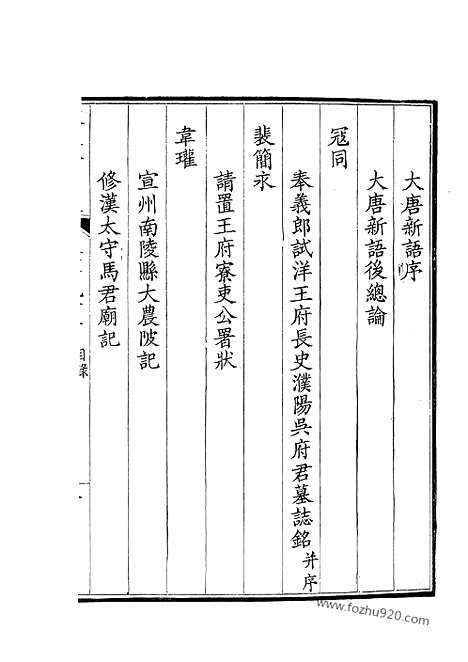 大唐新語序
大唐新語後總論
冦同
奉義郎試洋王府長史濮陽吳府君墓誌銘并序
裴簡永
請置王府寮吏公署狀
韋瓘
宣州南陵縣大農陂記
修漢太守馬君廟記
目錄
www.fozhu920.com